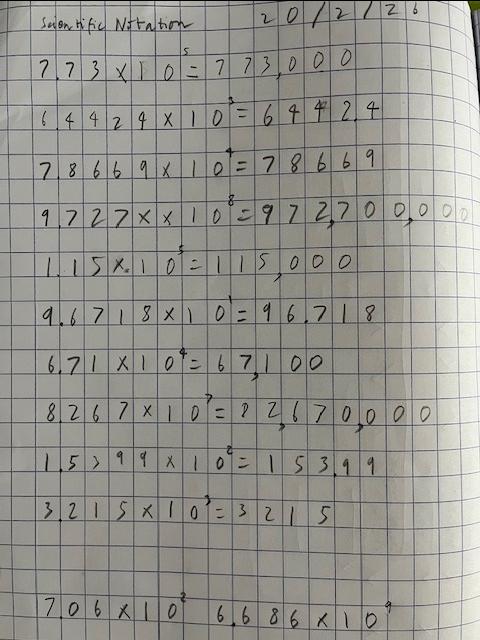 Scientific Notation 20/2/26
7.73 x 10⁵ = 773,000
6.4424 x 10³ = 6442.4
7.8669 x 10⁴ = 78669
9.727 x x 10⁸ = 972,700,000
1.15 x 10⁵ = 115,000
9.6718 x 10¹ = 96.718
6.71 x 10⁴ = 67,100
8.267 x 10⁷ = 82,670,000
1.5399 x 10² = 153.99
3.215 x 10³ = 3215
7.06 x 10² 6.686 x 10⁹